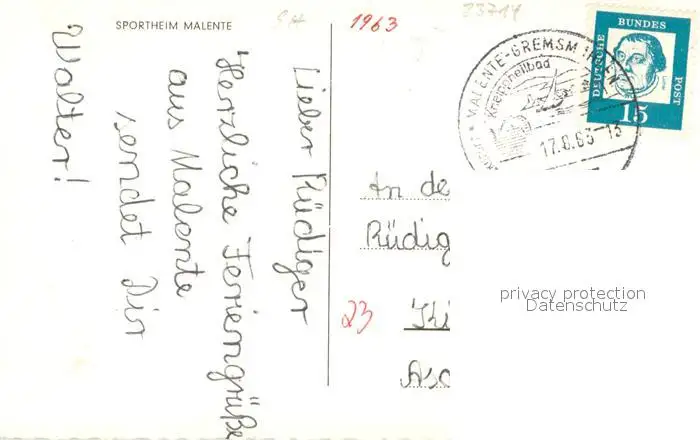 SPORTHEIM MALENTE
1963
23714
Lieber Rüdiger
Herzliche Feriengrüße
aus Malente
sendet Dir
Walter!
MALENTE-GREMSM
Kneippheilbad
17.8.63-13
DEUTSCHE
BUNDES
POST
15
An de
Rüdig
23
Ki
Asc
privacy protection
Datenschutz